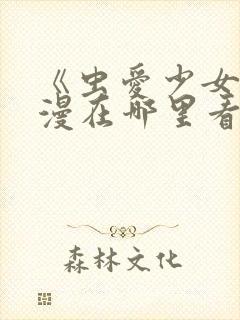 《虫爱少女
漫在哪里看
森林文化